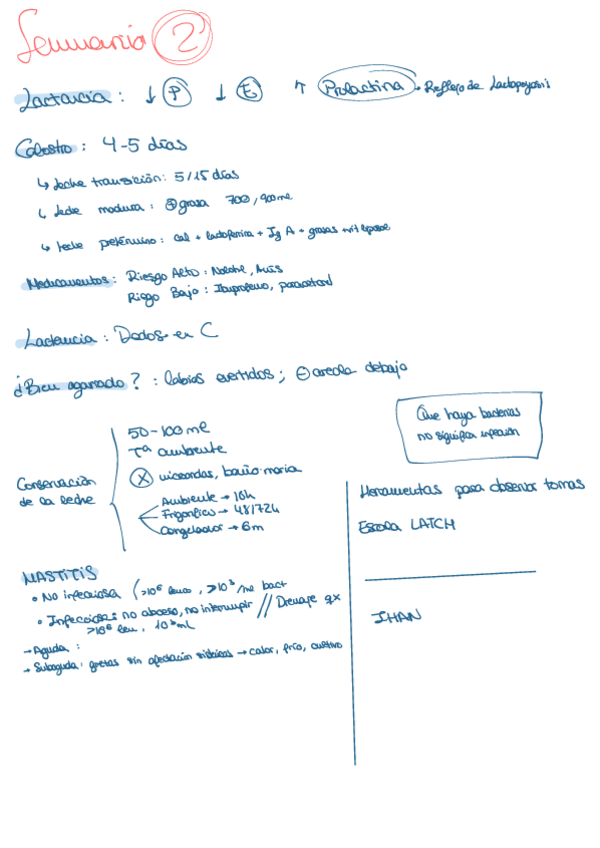 Semana 2
Lactancia : ↓ P ↓ E ↑ Prolactina → Reflejo de Lactopoyesis
Calostro : 4-5 días
↳ Leche transición : 5/15 días
↳ Leche madura : ⊕ grasa 700/900 ml
↳ Leche pretérmino : cal + lactoferrina + Ig A + grasas + vit
Medicamentos : Riesgo Alto : Nolotil,
Riesgo Bajo : Ibuprofeno, paracetamol
Lactancia : Dedos en C
¿Bien agarrado? : labios evertidos ; ⊖ areola debajo
Que haya bacterias
no significa infección
Conservación
de la leche
50-100 ml
Tª ambiente
X microondas, baño maria
Ambiente → 16h
Frigorífico → 48/72h
Congelador → 6m
MASTITIS
• No infecciosa (>10⁶ leuco, >10³/ml bact
• Infecciosa: no absceso, no interrumpir // Drenaje qx
>10⁶ leu, 10³ ml
→ Aguda :
→ Subaguda : grietas sin afectación sistémica → calor, frío, cultivo
Herramientas para observar tomas
Escala LATCH
IHAN